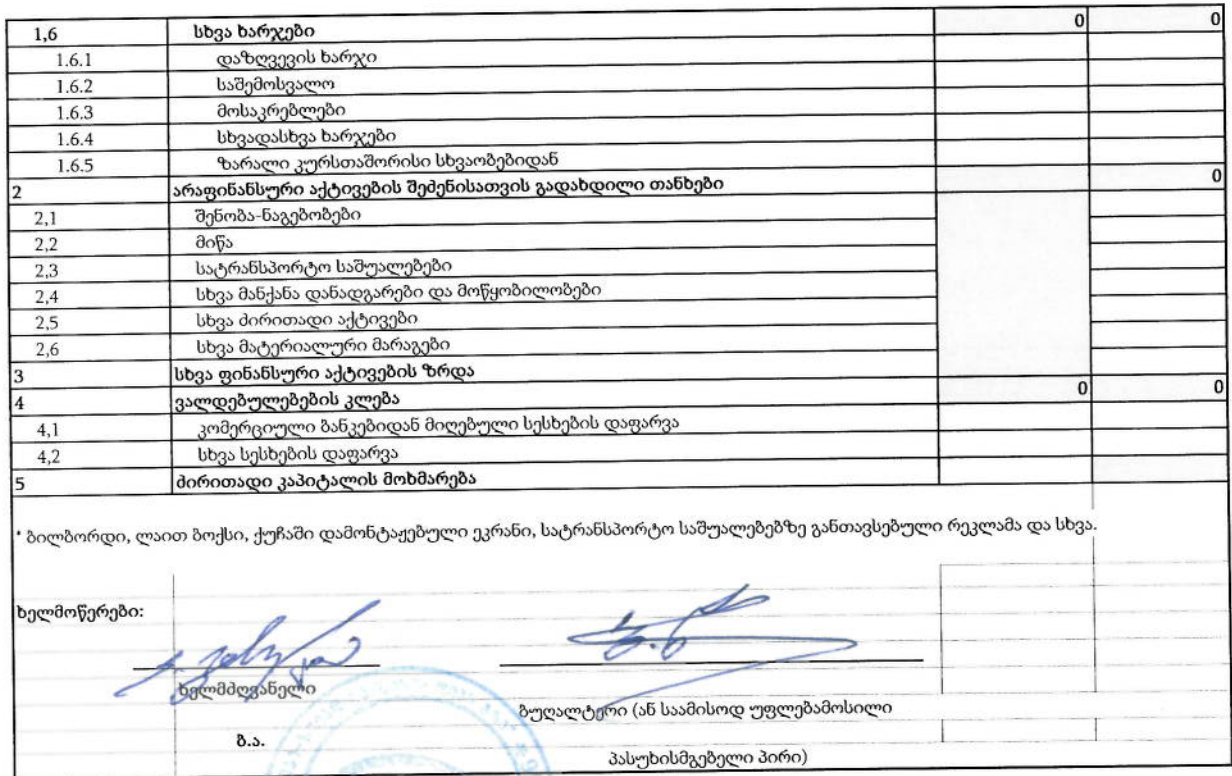 1,6 სხვა ხარჯები 0 0
1.6.1 დაზღვევის ხარჯი
1.6.2 საშემოსვალო
1.6.3 მოსაკრებლები
1.6.4 სხვადასხვა ხარჯები
1.6.5 ზარალი კურსთაშორისი სხვაობებიდან
2 არაფინანსური აქტივების შეძენისათვის გადახდილი თანხები 0
2,1 შენობა-ნაგებობები
2,2 მიწა
2,3 სატრანსპორტო საშუალებები
2,4 სხვა მანქანა დანადგარები და მოწყობილობები
2,5 სხვა ძირითადი აქტივები
2,6 სხვა მატერიალური მარაგები
3 სხვა ფინანსური აქტივების ზრდა
4 ვალდებულებების კლება 0 0
4,1 კომერციული ბანკებიდან მიღებული სესხების დაფარვა
4,2 სხვა სესხების დაფარვა
5 ძირითადი კაპიტალის მოხმარება
* ბილბორდი, ლაით ბოქსი, ქუჩაში დამონტაჟებული ეკრანი, სატრანსპორტო საშუალებებზე განთავსებული რეკლამა და სხვა.
ხელმოწერები:
ხელმძღვანელი
ბუღალტერი (ან საამისოდ უფლებამოსილი
ბ.ა.
პასუხისმგებელი პირი)